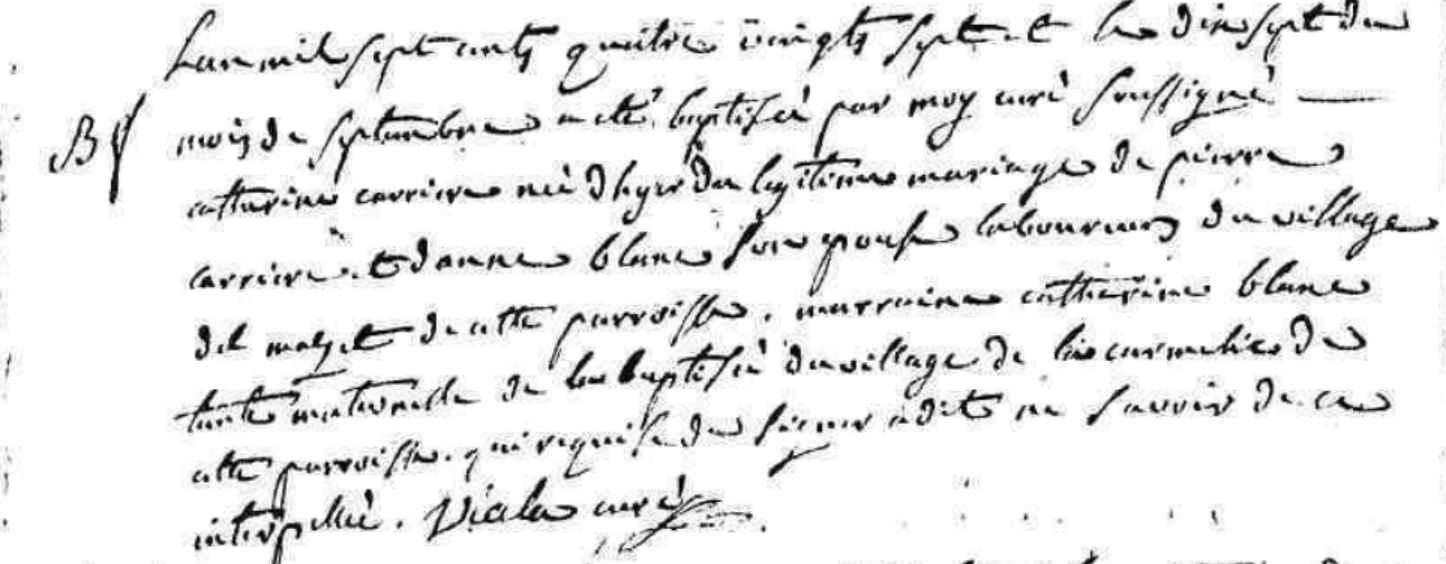 Lan mil sept cents quatre vingts sept et le dix sept du
B
mois de septembre a eté baptisée par moy curé soussigné
catherine carriere née d hyer du legitime mariage de pierre
carriere et d anne blanc son epouse laboureurs du village
del malzet de cette parroisse. marraine catherine blanc
tante maternelle de la baptisée du village de
cette parroisse. qui requise de signer a dit ne savoir de ce
interpellée. Viala curé